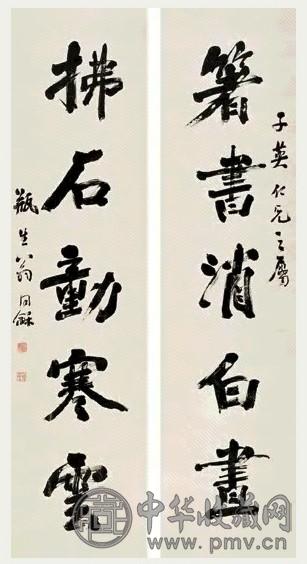 子英仁兄之屬
箸書消白晝
拂石動寒雲
瓶生翁同龢
中华收藏网
www.pmv.cn